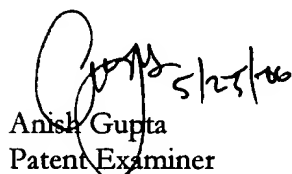 5/25/06
Anish Gupta
Patent Examiner